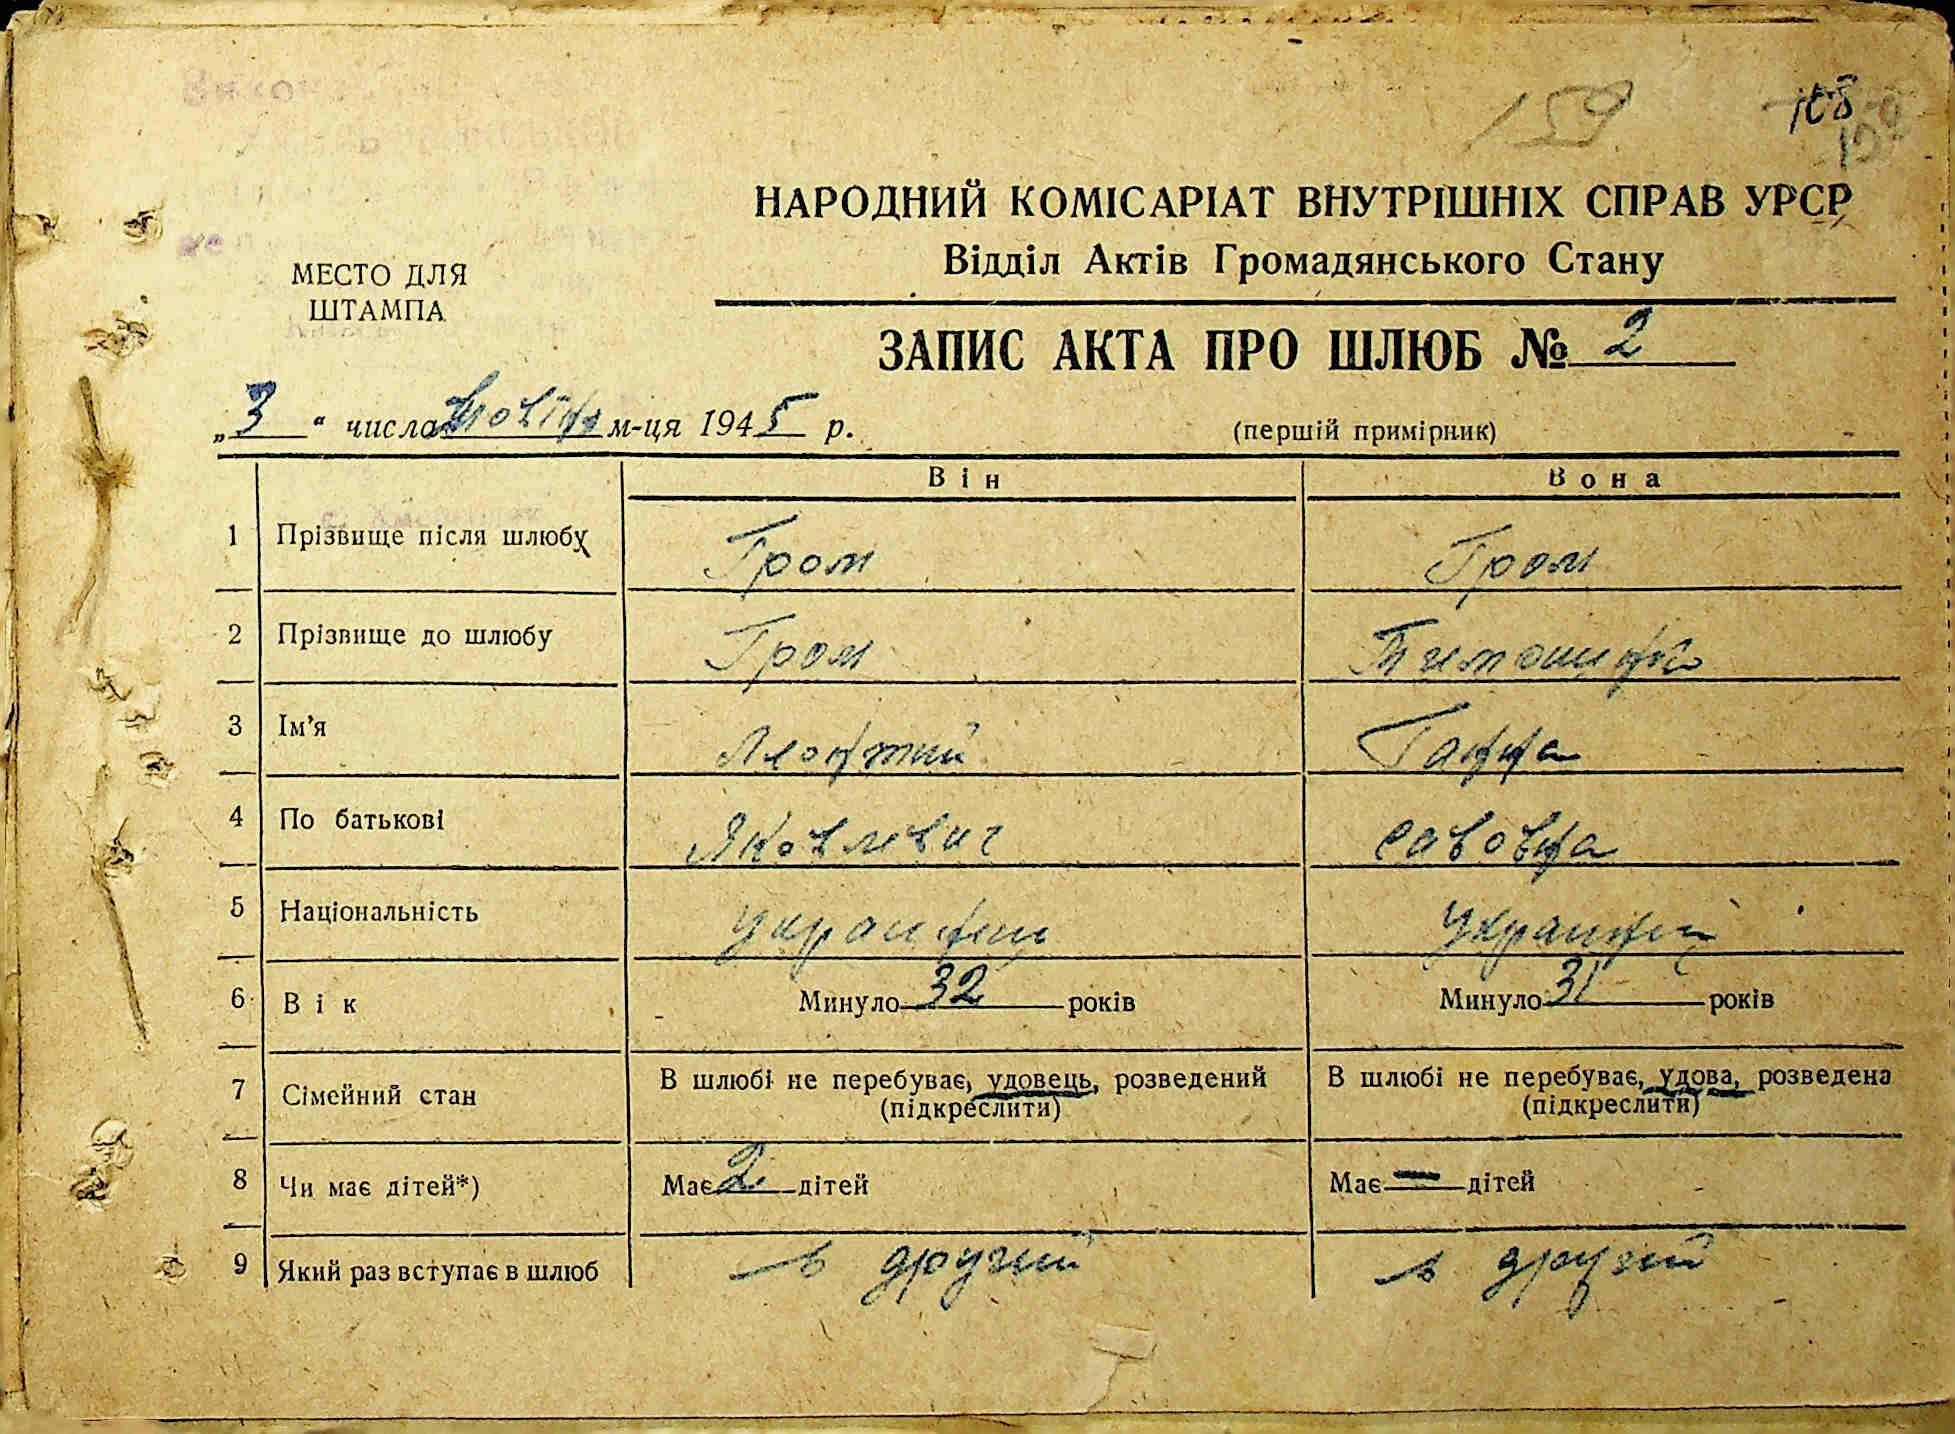 159
108
НАРОДНИЙ КОМІСАРІАТ ВНУТРІШНІХ СПРАВ УРСР
Відділ Актів Громадянського Стану
МЕСТО ДЛЯ
ШТАМПА
ЗАПИС АКТА ПРО ШЛЮБ № 2
„3“ числа жовтня м-ця 1945 р.
(перший примірник)
Він Вона
1 Прізвище після шлюбу Гром Гром
2 Прізвище до шлюбу Гром Тимошенко
3 Ім'я Леонтий Ганна
4 По батькові Яковлевич Савовна
5 Національність
6 Вік Минуло 32 років Минуло 31 років
7 Сімейний стан В шлюбі не перебуває, удовець, розведений В шлюбі не перебуває, удова, розведена
(підкреслити) (підкреслити)
8 Чи має дітей*) Має 2 дітей Має — дітей
9 Який раз вступає в шлюб в другий в другий